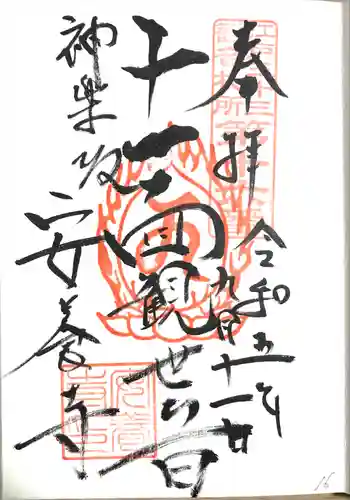 奉拝
令和五年
九月十一日
十一面観世音
神楽坂
安養寺
16